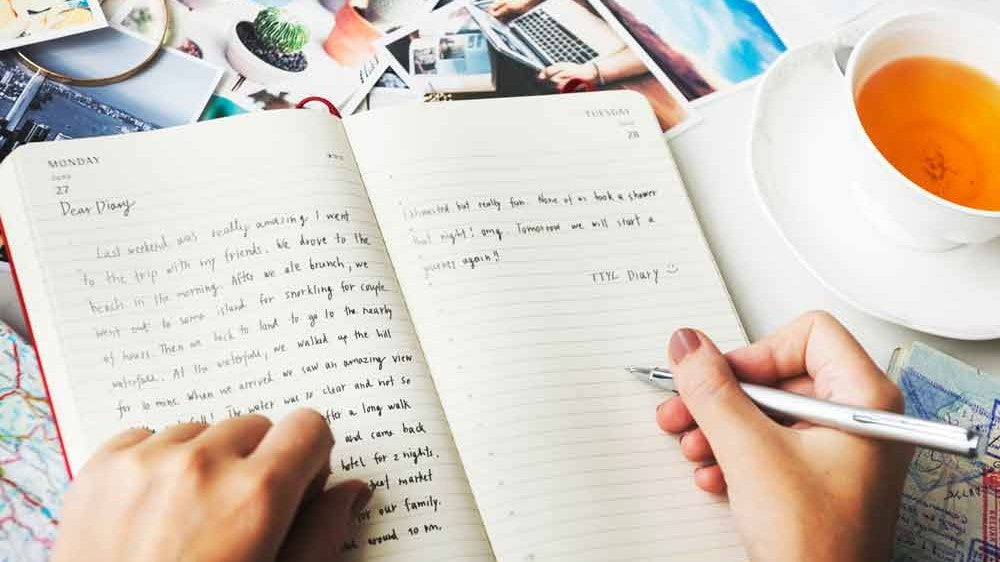 MONDAY
June
27
Dear Diary
Last weekend was really amazing. I went
to the trip with my friends. We drove to the
beach in the morning. After we ate brunch, we
went out to some island for snorkling for couple
of hours. Then we back to land to go to the nearby
waterfall. At the waterfall, we walked up the hill
for 10 mins. When we arrived we saw an amazing view
The water was so clear and not so
after a long walk
and came back
hotel for 2 nights.
market
for our family.
around 10 pm.
TUESDAY
June
28
Exhausted but really fun. None of us took a shower
that night! omg. Tomorrow we will start a
journey again!!
TTYL Diary